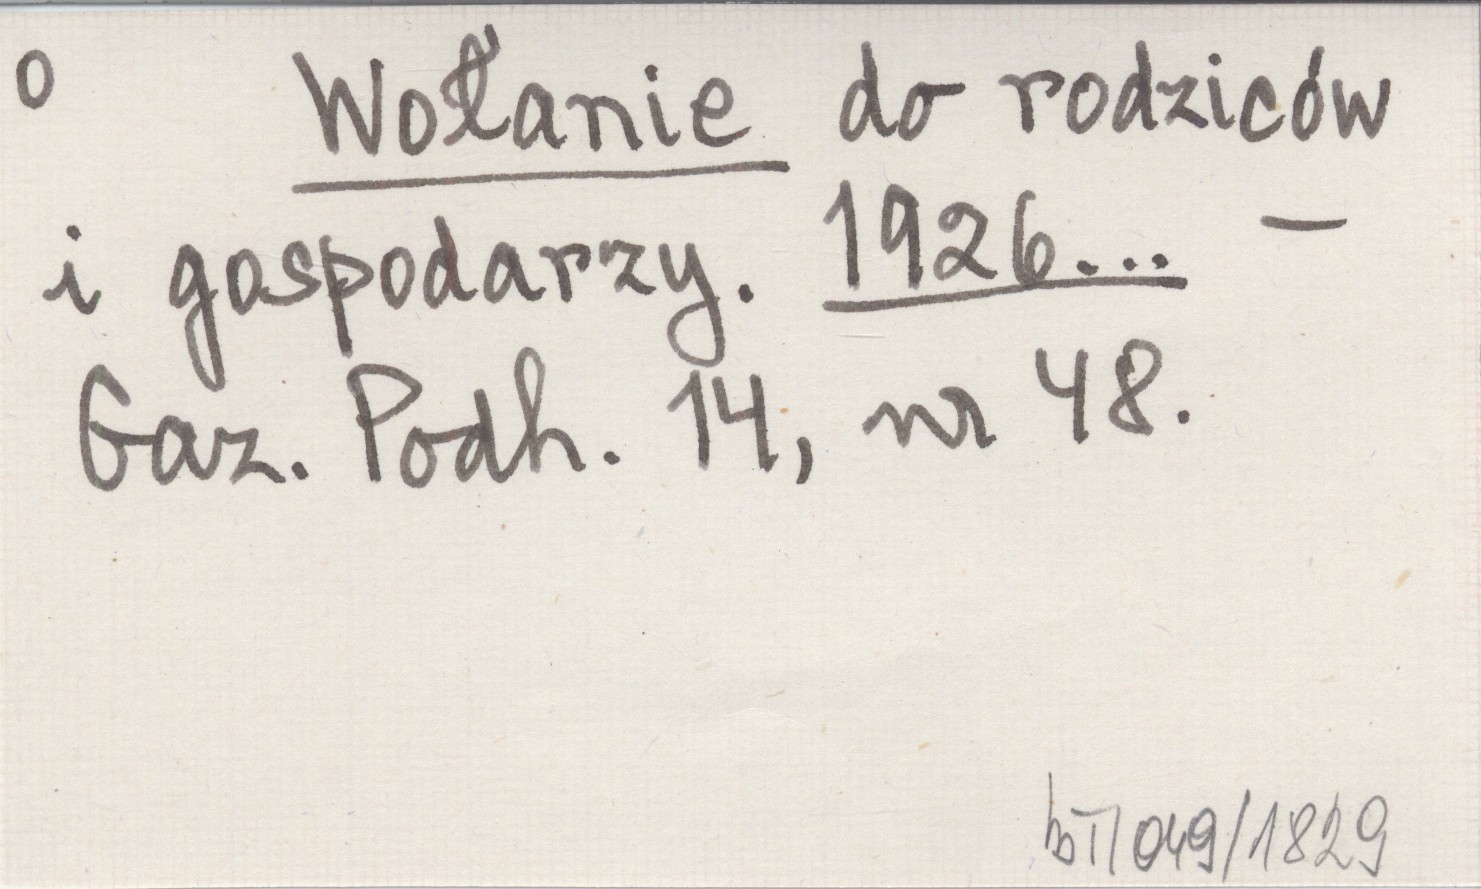 o Wołanie do rodziców
i gospodarzy. 1926... –
Gaz. Podh. 14, nr 48.
bT/049/1829